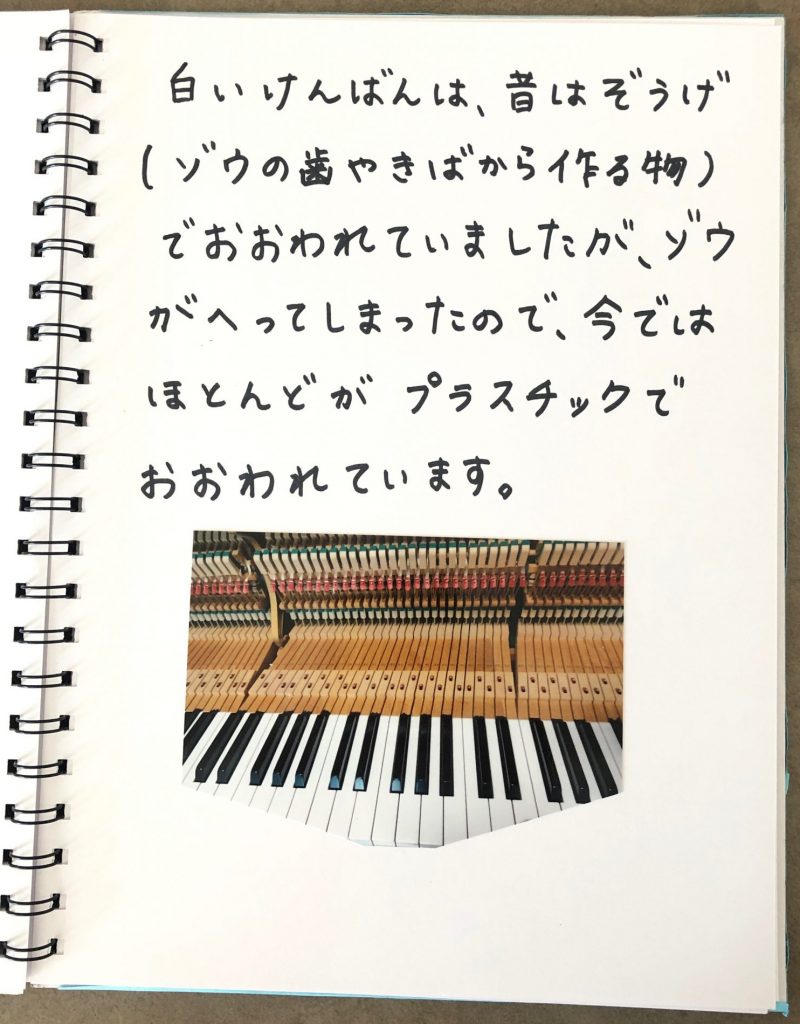 白いけんばんは、昔はぞうげ
(ゾウの歯やきばから作る物)
でおおわれていましたが、ゾウ
がへってしまったので、今では
ほとんどが プラスチックで
おおわれています。